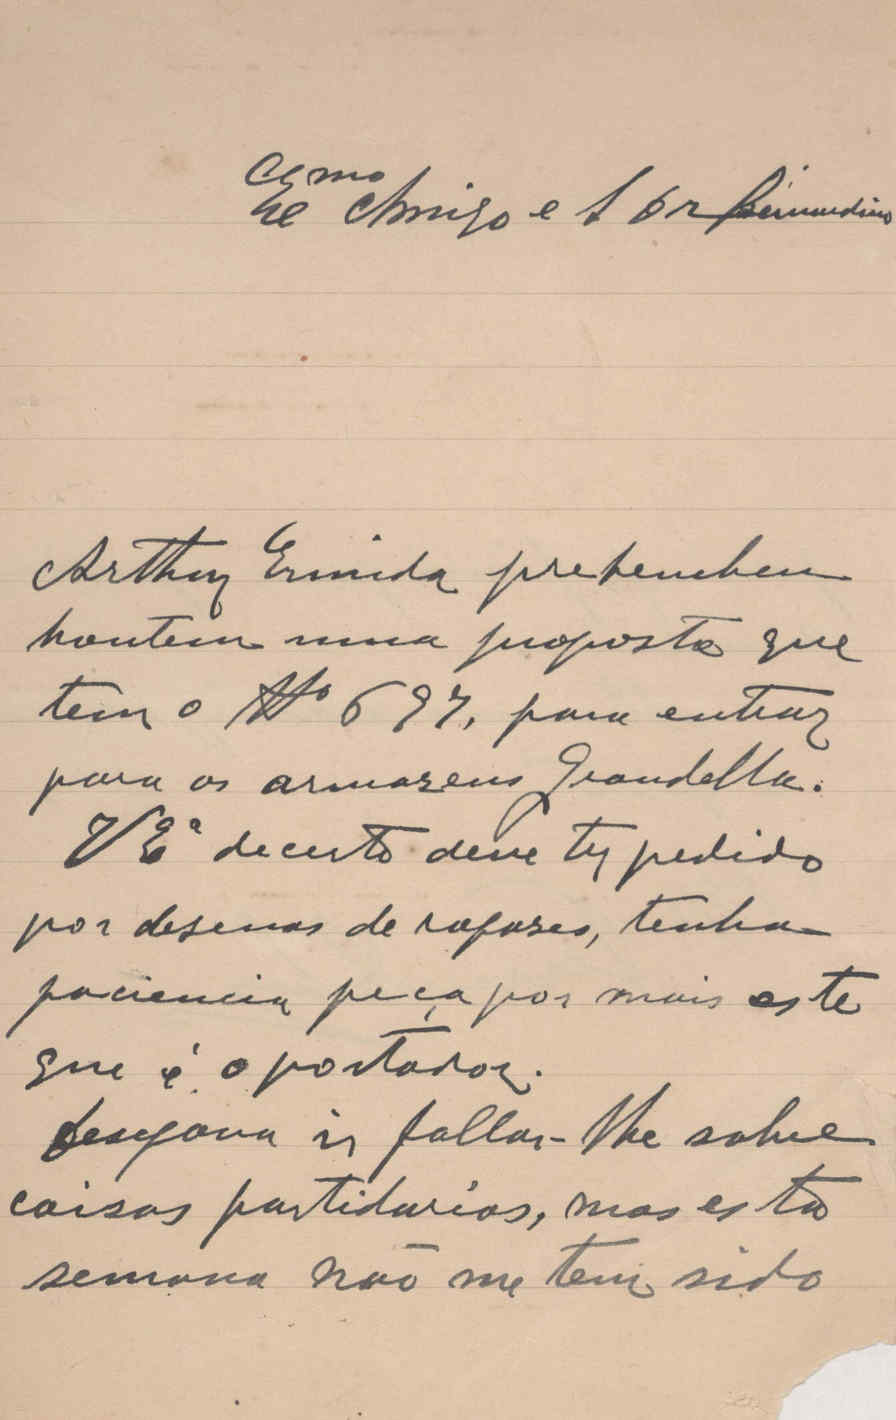 Exmo
Amigo e Sr Dr Bernardino
Arthur Ermida prehencheu
hontem uma proposta que
tem o Nº 697, para entrar
para os armazens Grandella.
V Eª decerto deve ter pedido
por desenas de rapazes, tenha
paciencia peça por mais este
que é o portador.
Desejava ir fallar-lhe sobre
coisas partidarias, mas esta
semana não me tem sido